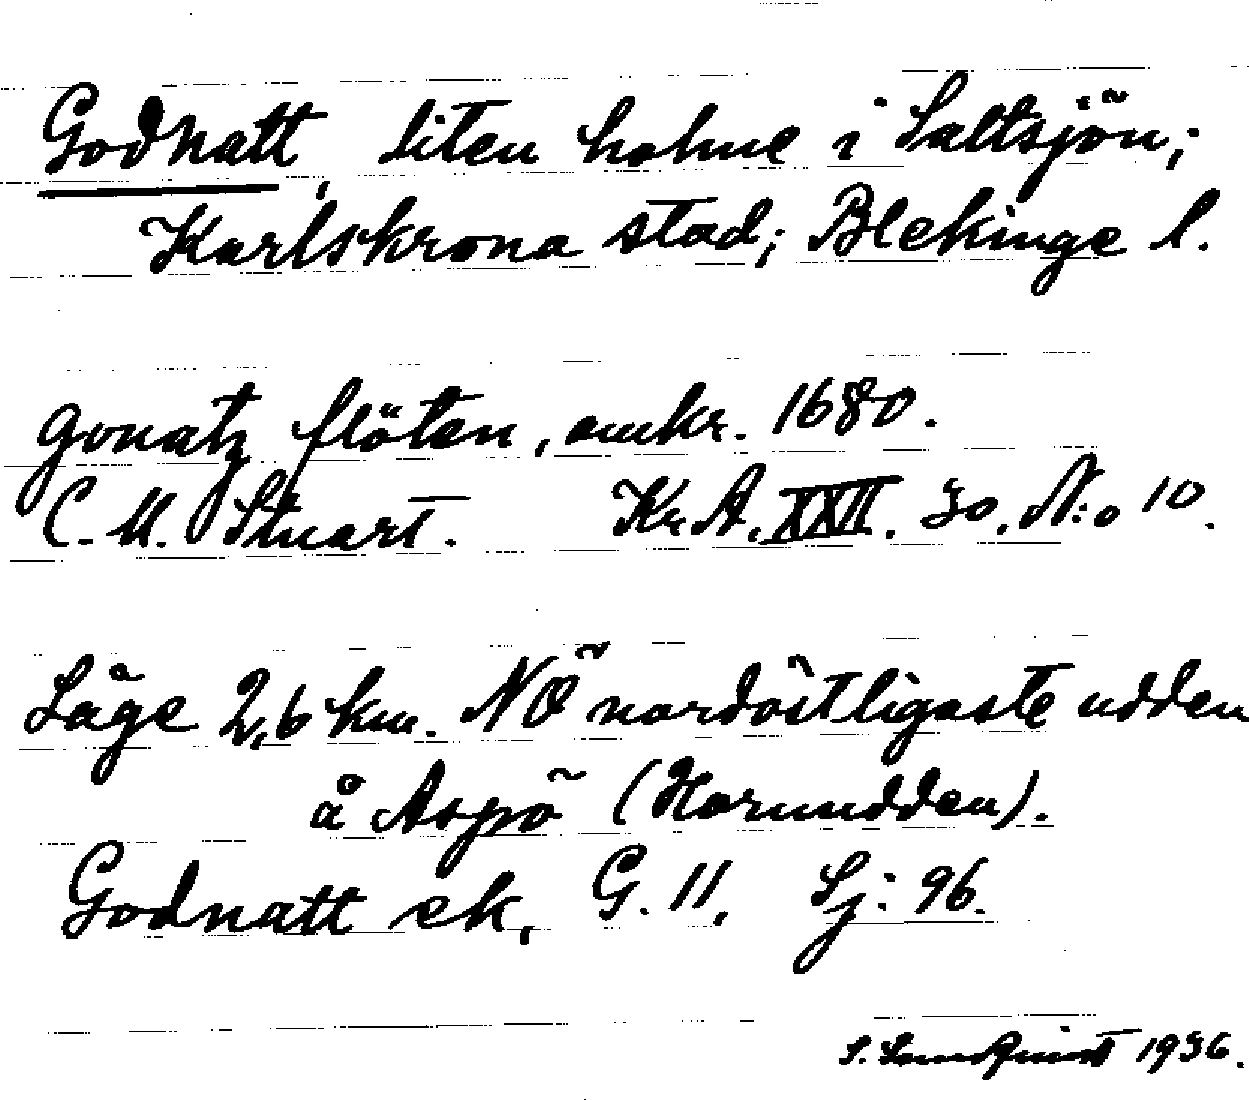 Godnatt, liten holme i Saltsjön;
Karlskrona stad; Blekinge l.
gonatz flöten, omkr. 1680.
C. M. Stuart. Kr. A. XXII. 30. N:o 10.
Läge 2,6 km. NÖ nordöstligaste udden
å Aspö (Hornudden).
Godnatt ek, G. 11, Sj: 96.
S. 1936.